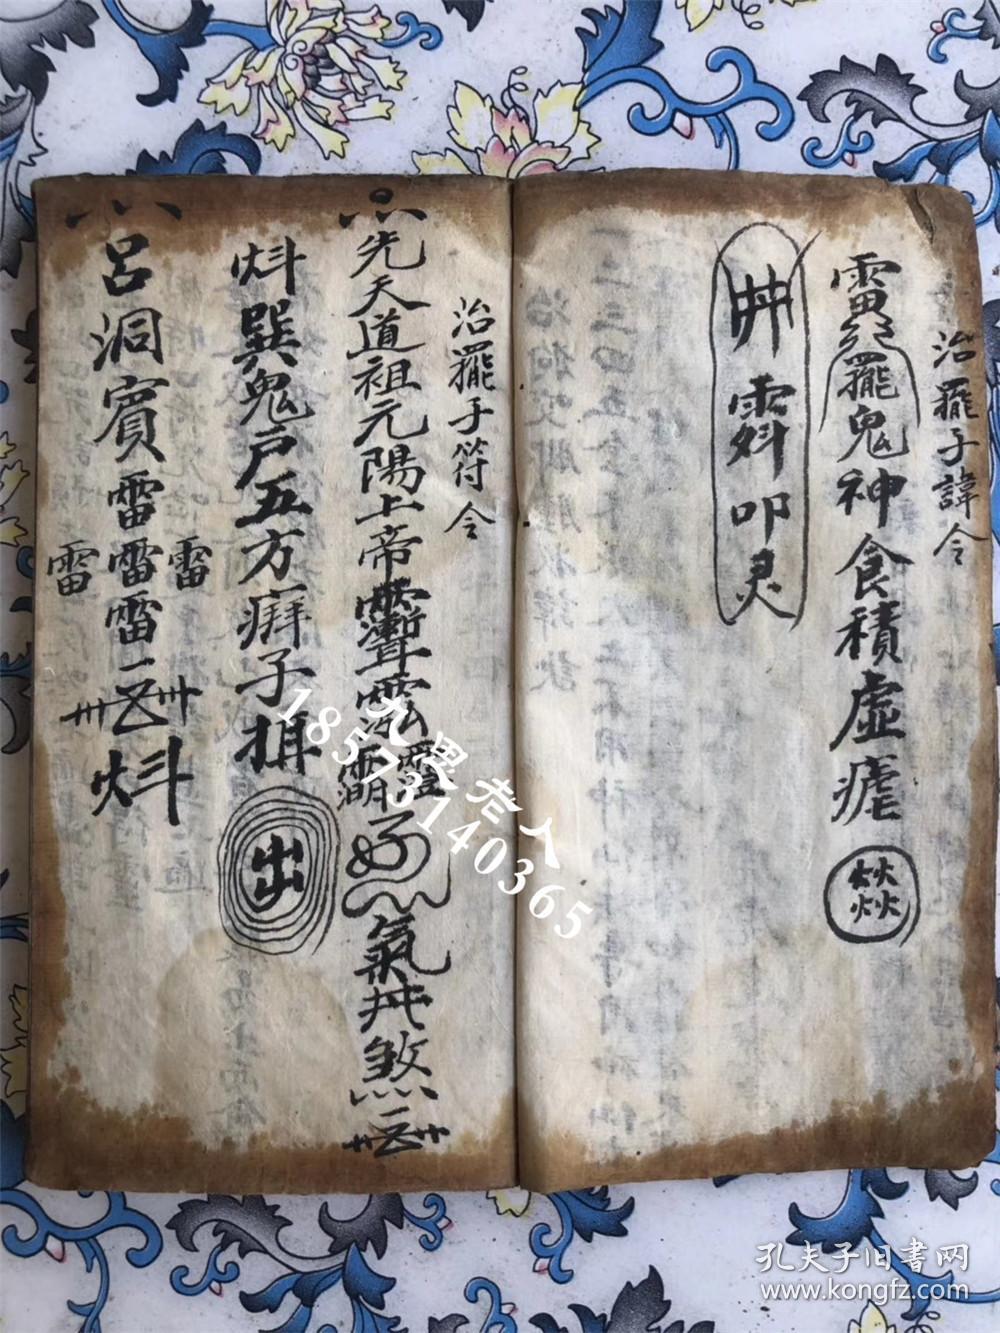 治罷子諱令
雷罷鬼神食積虚瘧
井 叩灵
治罷子符令
先天道祖元陽上帝 氣井煞
炓巽鬼户五方痱子 出
吕洞賓雷雷雷 炓
雷
雷
九思老人
18573140365
孔夫子旧書网
www.kongfz.com